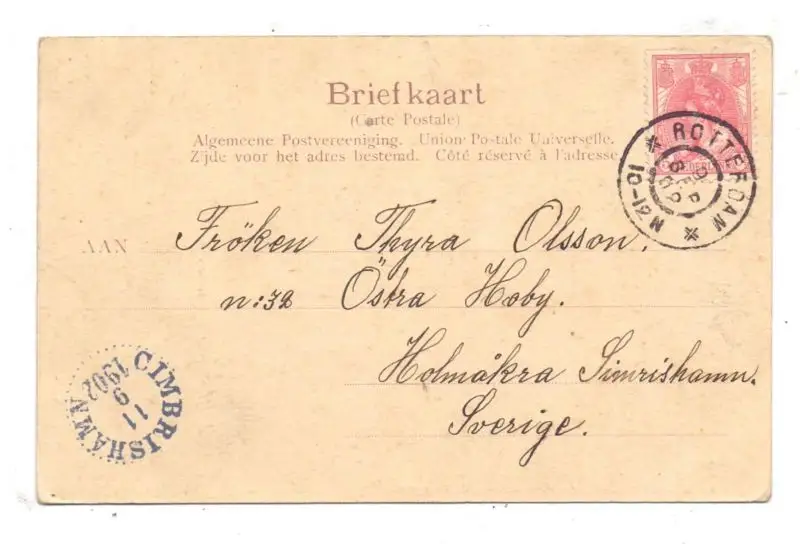 Briefkaart
(Carte Postale)
Algemeene Postvereeniging. Union Postale Universelle.
Zijde voor het adres bestemd. Côté réservé à l'adresse
ROTTERDAM
N 12-1 01
SEP
02
AAN
Fröken Thyra Olsson.
n:32 Östra Hoby.
Holmåkra Simrishamn.
Sverige.
CIMBRISHAMN
11
9
1902